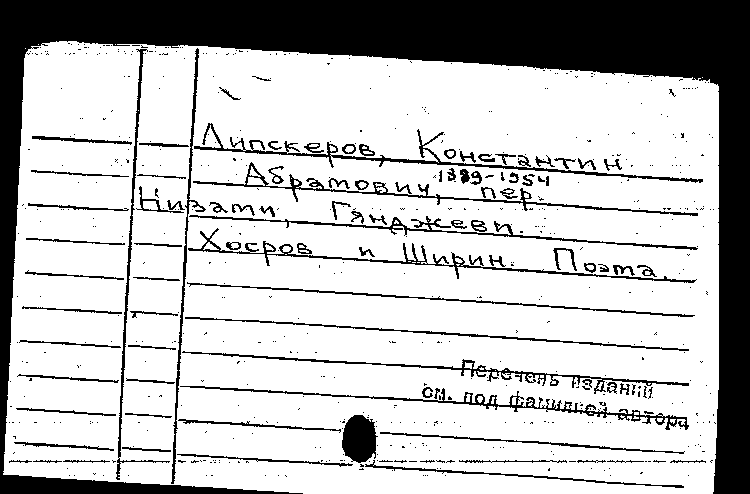 Липскеров, Константин
Абрамович, 1889-1954 пер.
Низами, Гянджеви.
Хосров и Ширин. Поэма.
Перечень изданий
см. под фамилией автора